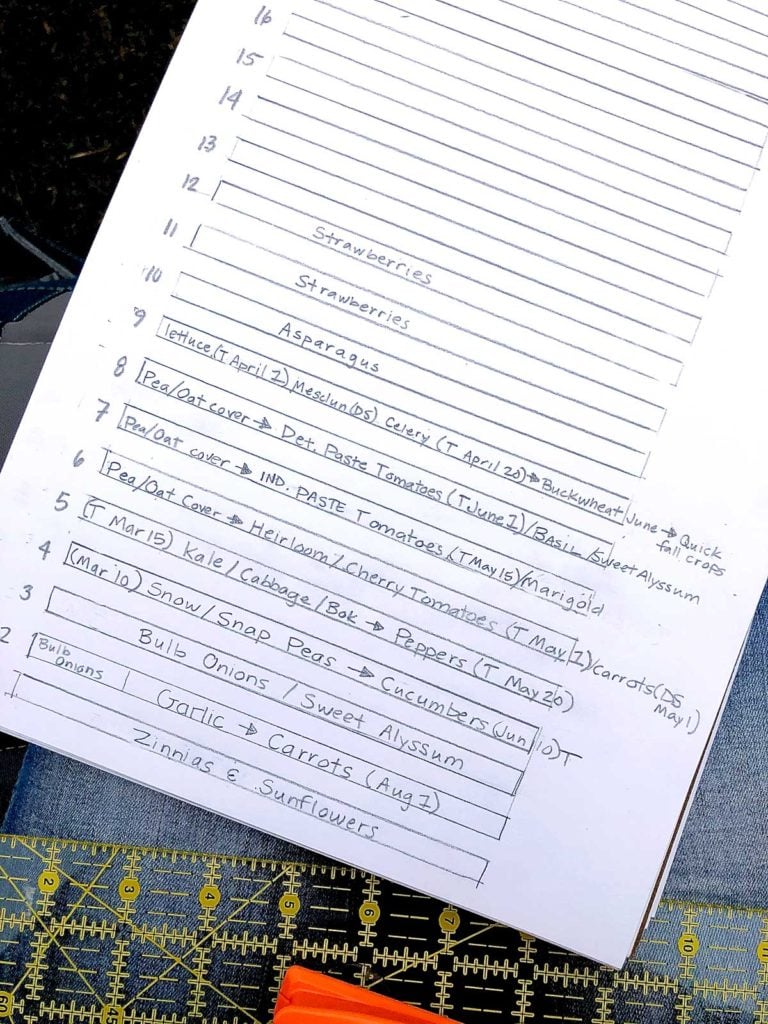 16
15
14
13
12 Strawberries
11 Strawberries
10 Asparagus
9 lettuce (T April 1) Mesclun (DS) Celery (T April 20) → Buckwheat June → Quick
fall crops
8 Pea/Oat cover → Det. Paste Tomatoes (T June 1)/Basil/Sweet Alyssum
7 Pea/Oat cover → IND. PASTE Tomatoes (T May 15)/Marigold
6 Pea/Oat Cover → Heirloom/Cherry Tomatoes (T May 1)/Carrots (DS
May 1)
5 (T Mar 15) Kale/Cabbage/Bok → Peppers (T May 20)
4 (Mar 10) Snow/Snap Peas → Cucumbers (Jun 10) T
3 Bulb Onions / Sweet Alyssum
2 Bulb
Onions
Garlic → Carrots (Aug 1)
Zinnias & Sunflowers
2 3 4 5 6 7 10 11
60 45